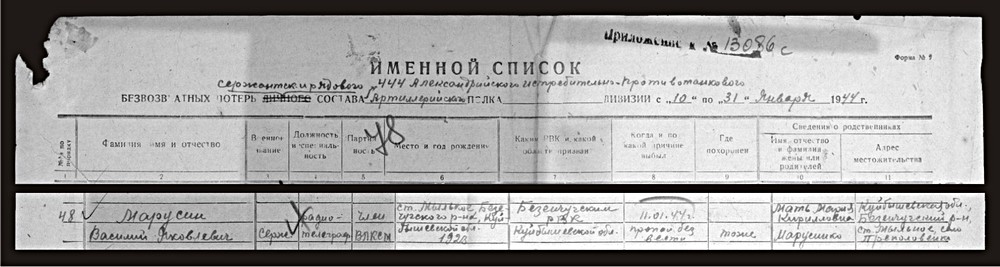 Приложение к № 13086 с
Форма № 2
ИМЕННОЙ СПИСОК
сержантск и рядового 444 Александрийского истребительно-противотанкового
БЕЗВОЗВРАТНЫХ ПОТЕРЬ ЛИЧНОГО СОСТАВА Артиллерийского ПОЛКА ДИВИЗИИ с „10" по „31" Января 1944 г.
48
№№ по порядку
Фамилия имя и отчество
Военное звание
Должность и специальность
Партийность
Место и год рождения
Каким РВК и какой области призван
Когда и по какой причине выбыл
Где похоронен
Сведения о родственниках
Имя, отчество и фамилия жены или родителей
Адрес местожительства
1 2 3 4 5 6 7 8 9 10 11
48 Марусин
Василий Яковлевич
Серж
радио-
телеграф
член
ВЛКСМ
ст. Мыльное Безен-
чугского р-на, Куй-
бышевской обл.
1923
Безенчугским
РВК
Куйбышевской обл.
11.01.44 г.
пропал без
вести
тоже
Мать Мария
Кирилловна
Куйбышевская обл.,
Безенчугский р-н,
ст. Мыльное, село